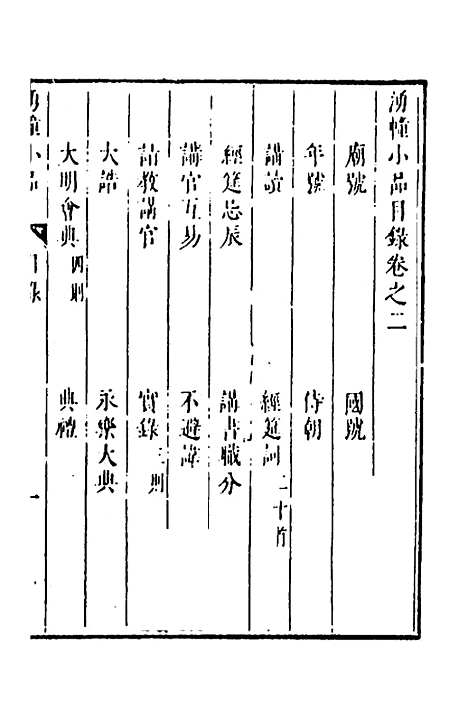 湧幢小品目錄卷之二
廟號 國號
年號 侍朝
講讀 經筵詞二十首
經筵忌辰 講書職分
講官互易 不避諱
詰教講官 實錄三則
大誥 永樂大典
大明會典四則 典禮
湧幢小品 目錄 一